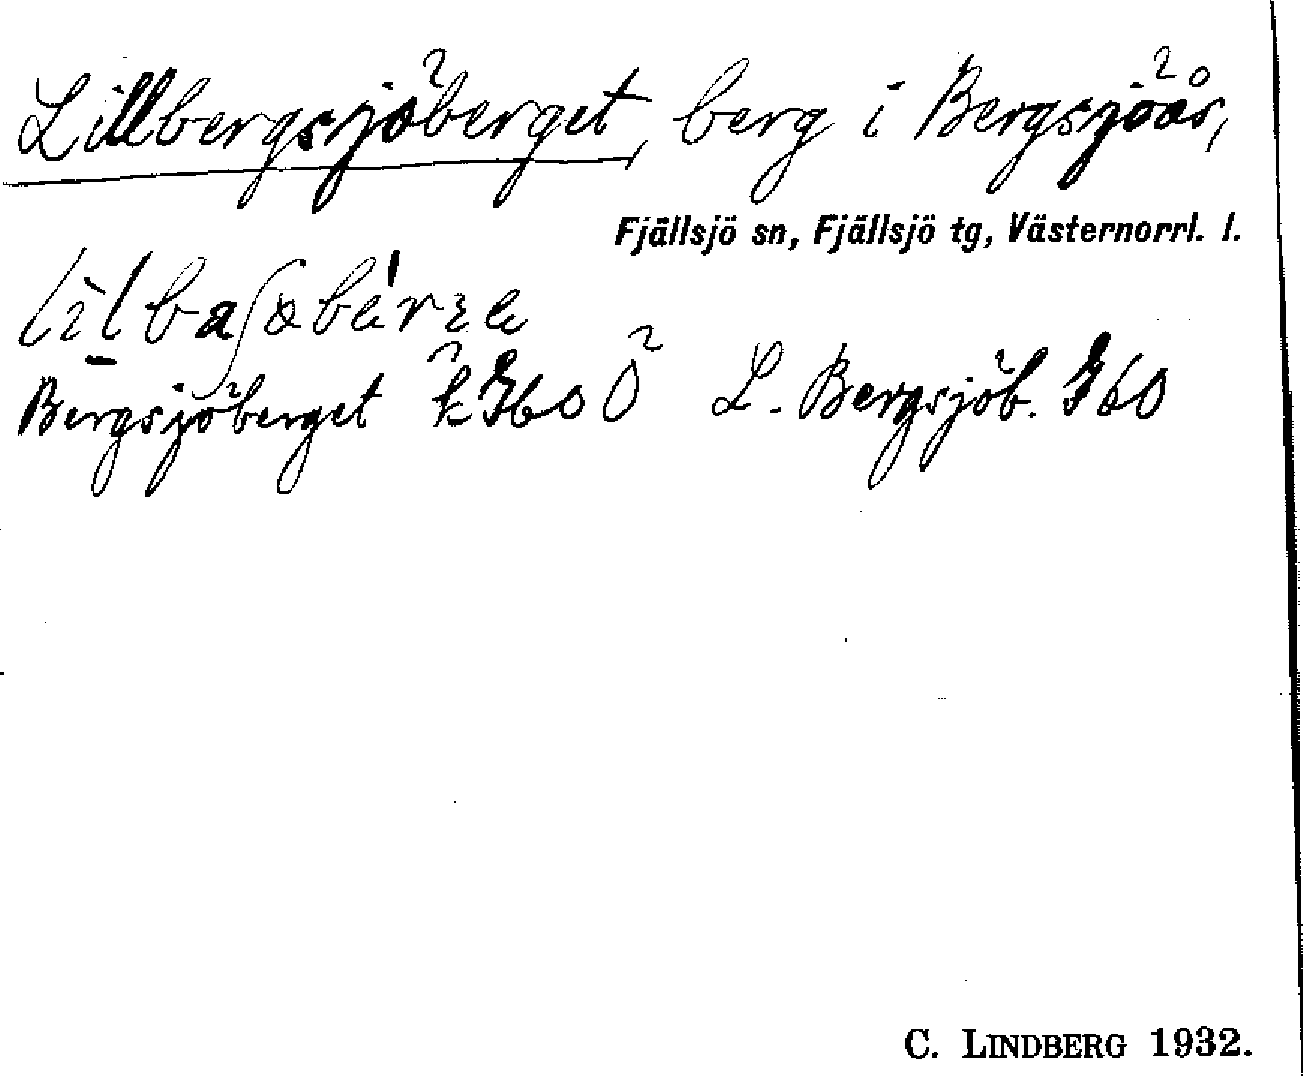 Lillbergsjöberget, berg i Bergsjöås,
Fjällsjö sn, Fjällsjö tg, Västernorrl. l.
Bergsjöberget Ö L. Bergsjöb. 60
C. LINDBERG 1932.